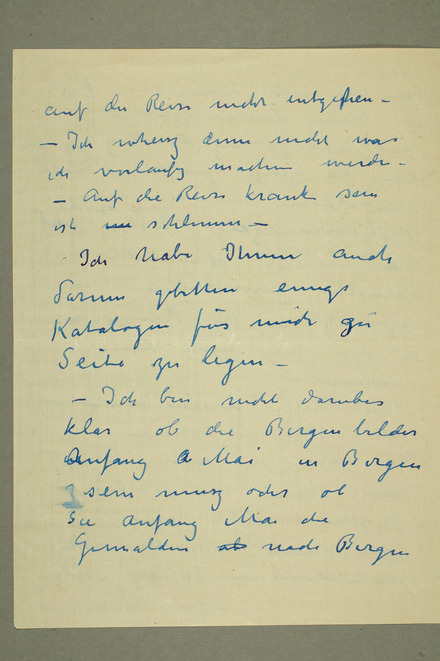 auf die Reise nicht entgehen –
– Ich weisz denn nicht was
ich vorläufig machen werde –
– Auf die Reise krank sein
ist schlimm –
Ich habe Ihnen auch
darum gebitten einige
Katalogen für mich zu
Seite zu legen –
– Ich bin nicht darüber
klar ob die Bergenbilder
Anfang Mai in Bergen
sein musz oder ob
Sie Anfang Mai die
Gemälden nach Bergen